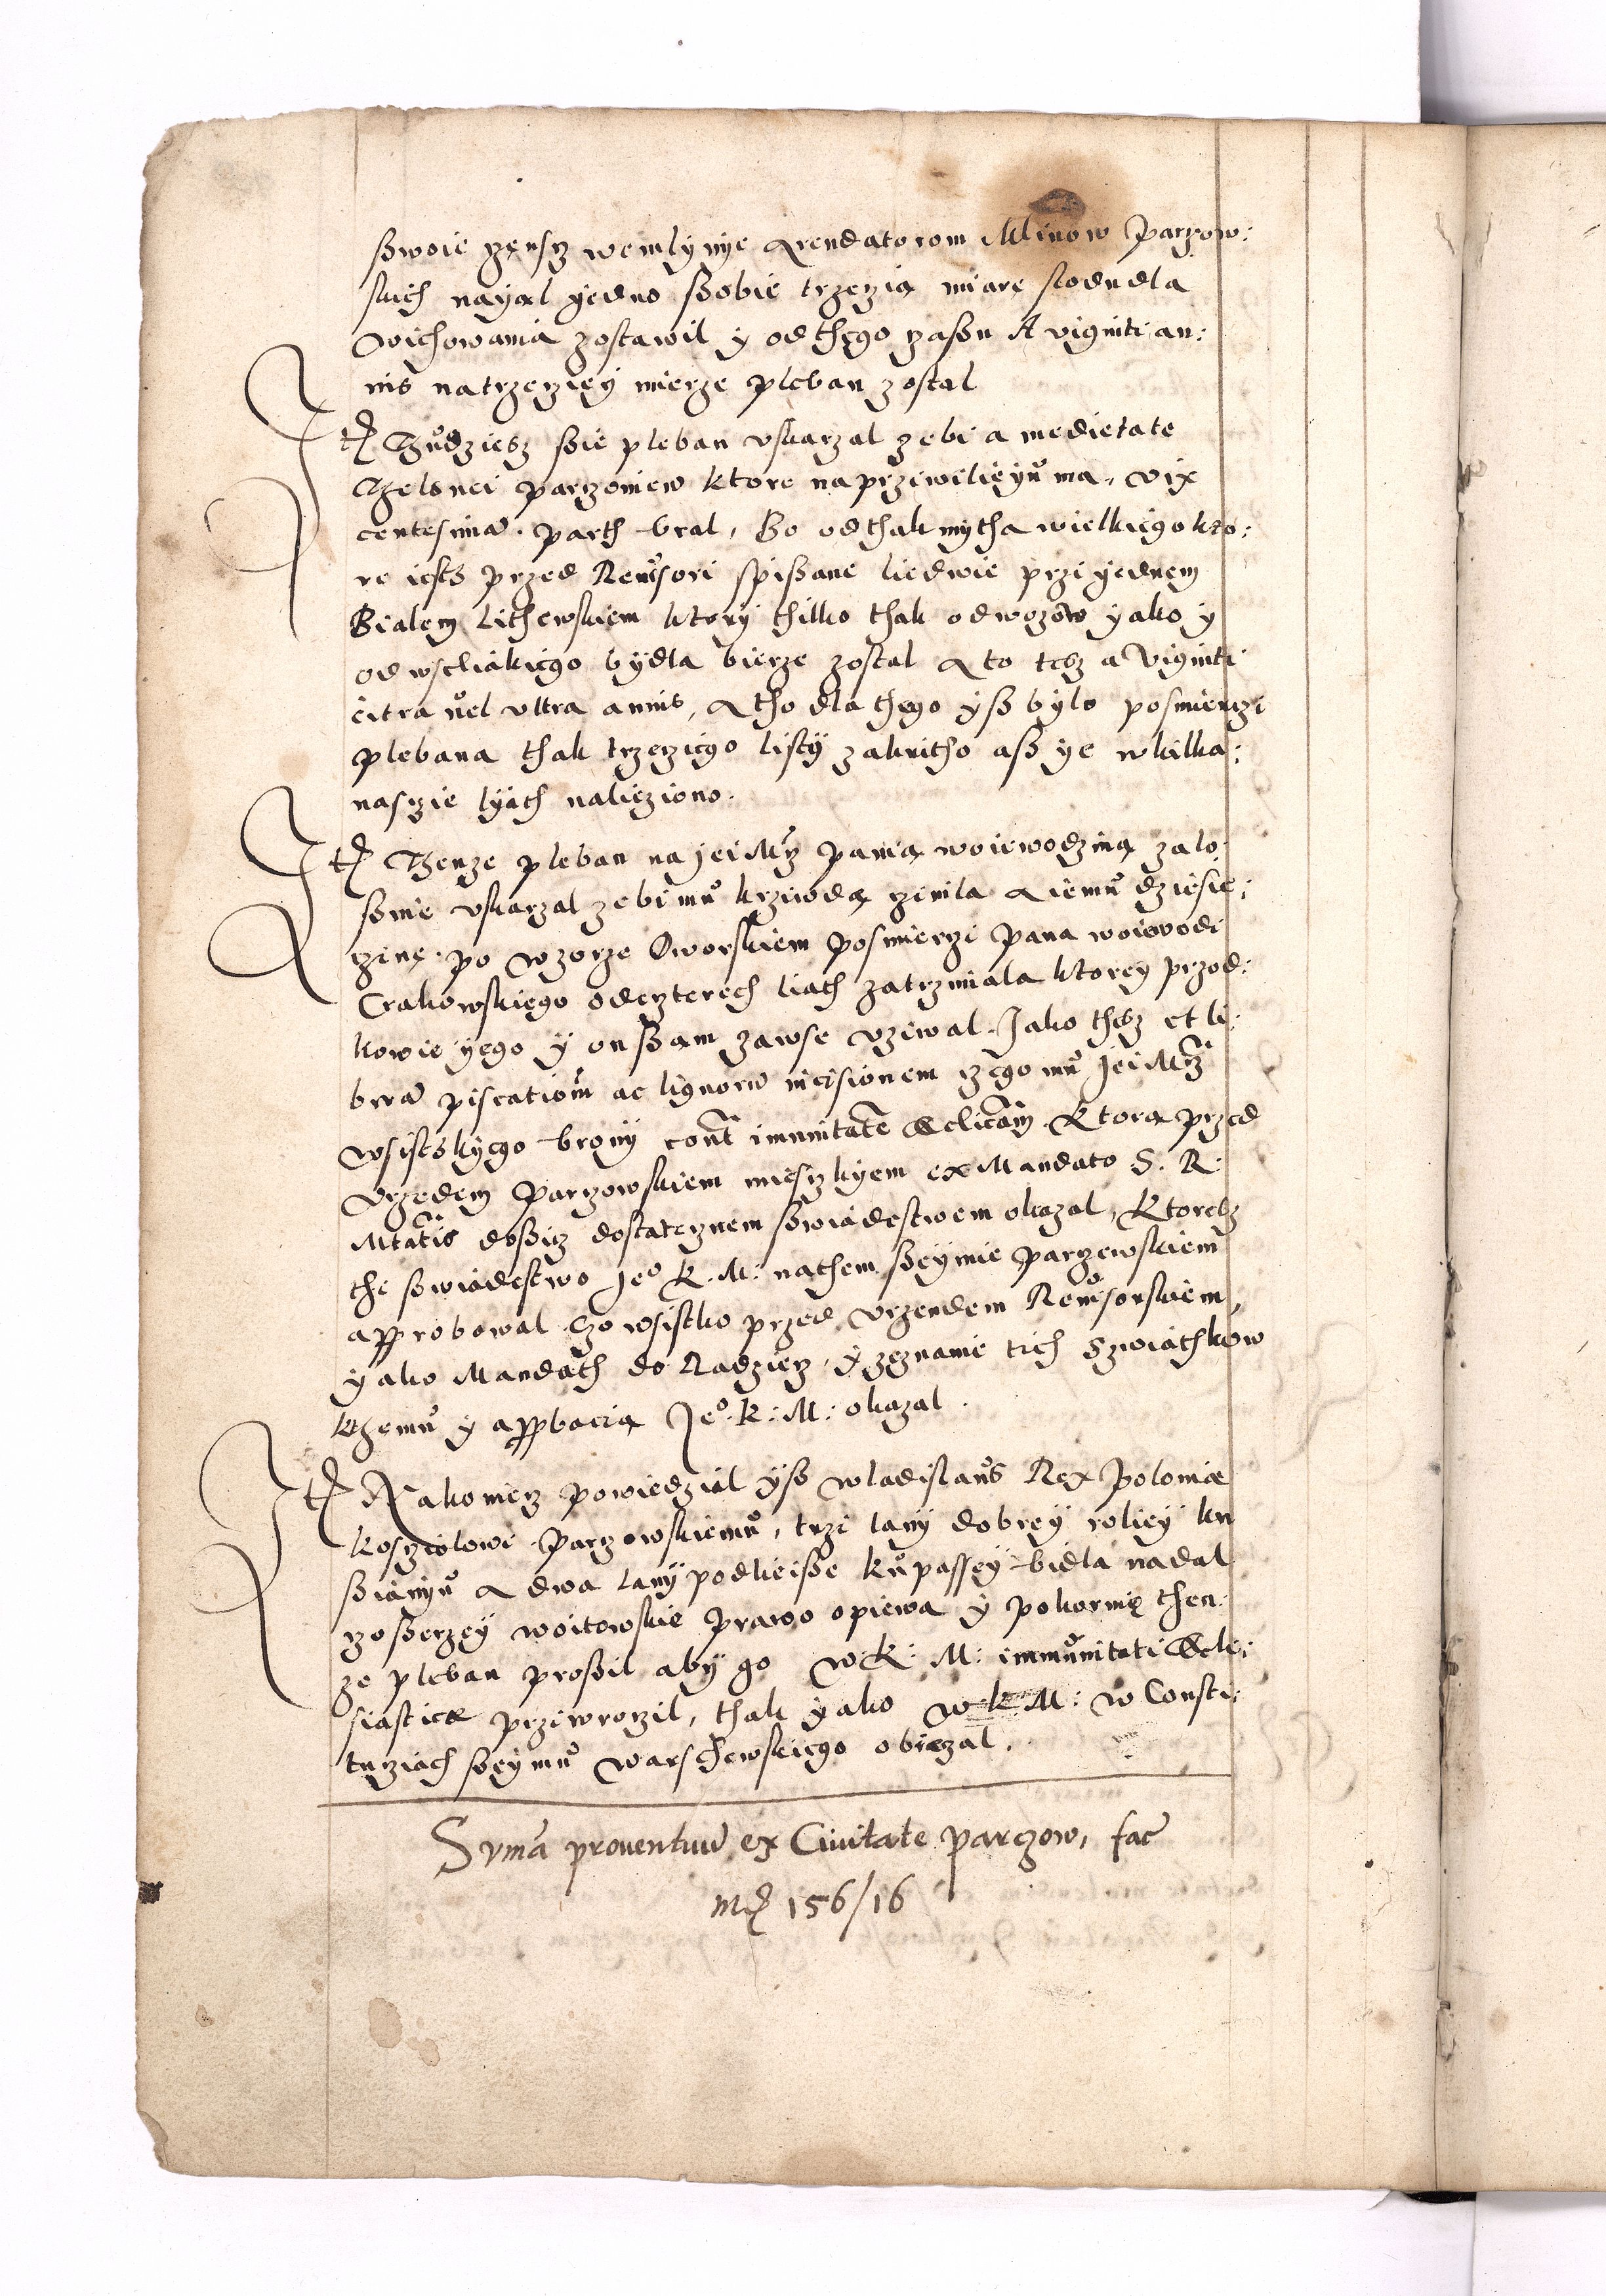 sswoie częnscz wemlynye Arendatorom Mlinow Parczow:
skich nayąl yedno ssobie trzeczią miarę slodu dla
wichowania zostawil y od thęgo czassu A viginti an:
nis natrzecziey mierze pleban zostal
Itē Thudziesz ssie pleban vskarzal zebi a medietate
Czelsnei parczoniew ktore na przewilieyu ma, vix
centesimā parth bral, Bo od thak mytha wielkiego kto:
re iests przed Revisori spissane liedwie przi yednem
Bialem Lithewskiem ktory thilko thak od wozow yako y
od wscliakięgo bydla bierze zostal A to tesz a viginti
citra vel vltra annis, A tho dla thego yss bylo posmierczi
plebana thak trzeczięgo listy zakritho ass ye w kilka:
nasczie lyath nalieziono.
Itē Thenze pleban na Jei Mcz panią woiewodziną zalo
ssnie vskarzal zebi mu krziwdą czinila A iemu dziesię:
czinę po wzorze Dworskiem posmierczi pana woiewodi
Crakowskięgo od czterech liath zatrzimala ktorey przod:
kowie yego y on ssam zawse vziwal Jako thesz et li:
berā piscationē ac lignorū incisionem czego mu Jei Mcz
wsistskyego brony contra imunitatē Ecclicam. Ktorą przed
Vrzedem Parczowskiem mieszkyem ex Mandato S. R.
Mtatis dossicz dostatcznem sswiadestwem okazal, Ktoresz
the sswiadestwo Jeo K. M: nathem sseymie parczewskiem
approbowal Czo wsistko przed vrzendem Revisorskiem,
yako Mandath do Radziecz, y zeznanie tich Szwiathkow
kthemu y appbacią Jeo: K: M: okazal.
Itē Nakoniecz powiedzial yss wladislaus Rex Poloniæ
kosczolowi Parczowskiemu, trzi lany dobrey roliey ku
ssianyu A dwa Lany podleisse ku passey bidla nadal
czo sserzey woitowskie prawo opiewa y pokornię then:
ze pleban prossil aby go W K: M: immunitati Eccle:
siasticæ przewroczil, thak yako W K M: w Consti:
tucziach sseymu warschewskięgo obieczal.
Sumā proventuū ex Civitate parczow, fac̄
mc̄ 156/16